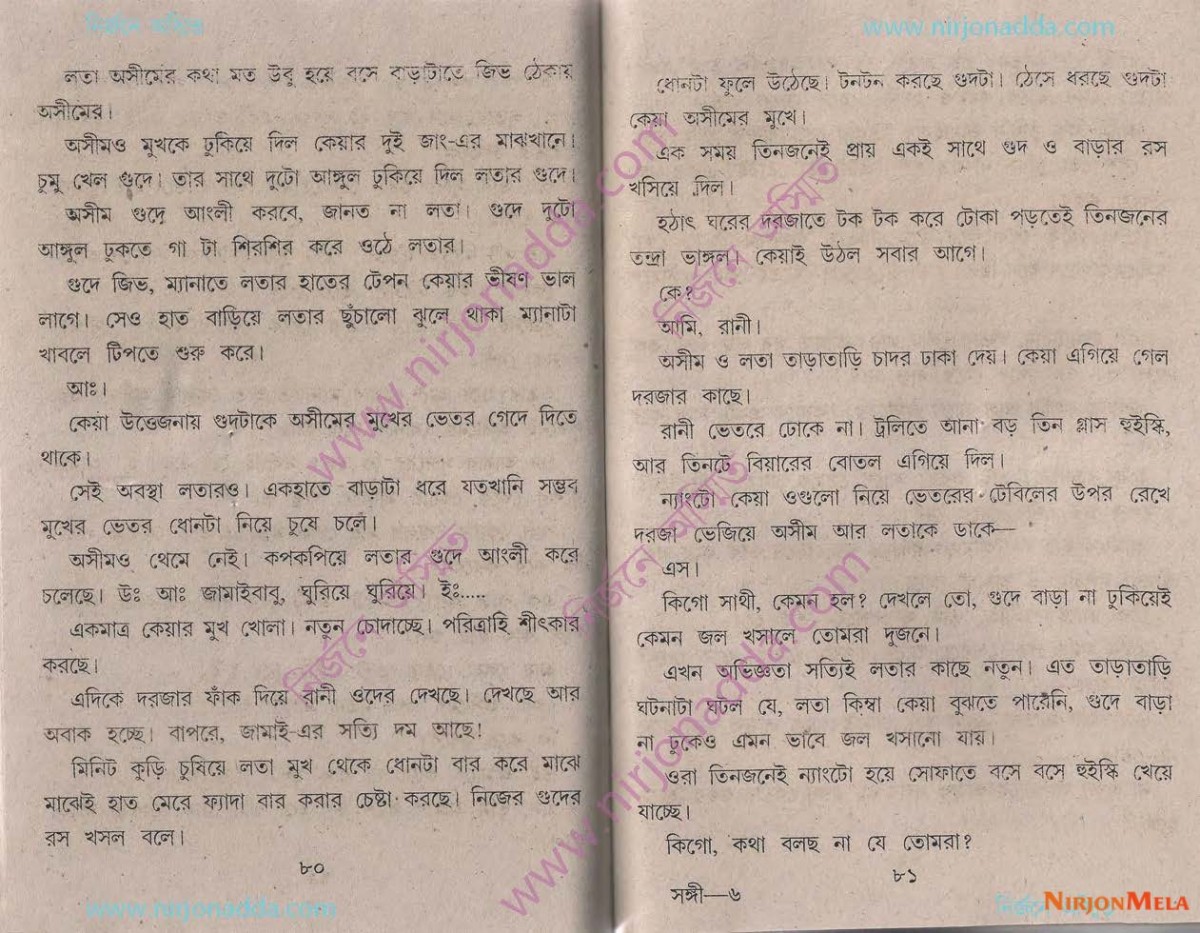 www.nirjonadda.com
লতা অসীমের কথা মত উবু হয়ে বসে বাড়াটাতে জিভ ঠেকায়
অসীমের।
অসীমও মুখকে ঢুকিয়ে দিল কেয়ার দুই জাং-এর মাঝখানে।
চুমু খেল গুদে। তার সাথে দুটো আঙ্গুল ঢুকিয়ে দিল লতার গুদে।
অসীম গুদে আংলী করবে, জানত না লতা। গুদে দুটো
আঙ্গুল ঢুকতে গা টা শিরশির করে ওঠে লতার।
গুদে জিভ, ম্যানাতে লতার হাতের টেপন কেয়ার ভীষণ ভাল
লাগে। সেও হাত বাড়িয়ে লতার ছুঁচালো ঝুলে থাকা ম্যানাটা
খাবলে টিপতে শুরু করে।
আঃ।
কেয়া উত্তেজনায় গুদটাকে অসীমের মুখের ভেতর গেদে দিতে
থাকে।
সেই অবস্থা লতারও। একহাতে বাড়াটা ধরে যতখানি সম্ভব
মুখের ভেতর ধোনটা নিয়ে চুষে চলে।
অসীমও থেমে নেই। কপকপিয়ে লতার গুদে আংলী করে
চলেছে। উঃ আঃ জামাইবাবু, ঘুরিয়ে ঘুরিয়ে। ইঃ.....
একমাত্র কেয়ার মুখ খোলা। নতুন চোদাচ্ছে। পরিত্রাহি শীৎকার
করছে।
এদিকে দরজার ফাঁক দিয়ে রানী ওদের দেখছে। দেখছে আর
অবাক হচ্ছে। বাপরে, জামাই-এর সত্যি দম আছে!
মিনিট কুড়ি চুষিয়ে লতা মুখ থেকে ধোনটা বার করে মাঝে
মাঝেই হাত মেরে ফ্যাদা বার করার চেষ্টা করছে। নিজের গুদের
রস খসল বলে।
৮০
www.nirjonadda.com
ধোনটা ফুলে উঠেছে। টনটন করছে গুদটা। ঠেসে ধরছে গুদটা
কেয়া অসীমের মুখে।
এক সময় তিনজনেই প্রায় একই সাথে গুদ ও বাড়ার রস
খসিয়ে দিল।
হঠাৎ ঘরের দরজাতে টক টক করে টোকা পড়তেই তিনজনের
তন্দ্রা ভাঙ্গল। কেয়াই উঠল সবার আগে।
কে?
আমি, রানী।
অসীম ও লতা তাড়াতাড়ি চাদর ঢাকা দেয়। কেয়া এগিয়ে গেল
দরজার কাছে।
রানী ভেতরে ঢোকে না। ট্রলিতে আনা বড় তিন গ্লাস হুইস্কি,
আর তিনটে বিয়ারের বোতল এগিয়ে দিল।
ন্যাংটো কেয়া ওগুলো নিয়ে ভেতরের টেবিলের উপর রেখে
দরজা ভেজিয়ে অসীম আর লতাকে ডাকে—
এস।
কিগো সাথী, কেমন হল? দেখলে তো, গুদে বাড়া না ঢুকিয়েই
কেমন জল খসালে তোমরা দুজনে।
এখন অভিজ্ঞতা সত্যিই লতার কাছে নতুন। এত তাড়াতাড়ি
ঘটনাটা ঘটল যে, লতা কিম্বা কেয়া বুঝতে পারেনি, গুদে বাড়া
না ঢুকেও এমন ভাবে জল খসানো যায়।
ওরা তিনজনেই ন্যাংটো হয়ে সোফাতে বসে বসে হুইস্কি খেয়ে
যাচ্ছে।
কিগো, কথা বলছ না যে তোমরা?
৮১
সঙ্গী—৬
www.nirjonadda.com
www.nirjonadda.com
NIRJONMELA